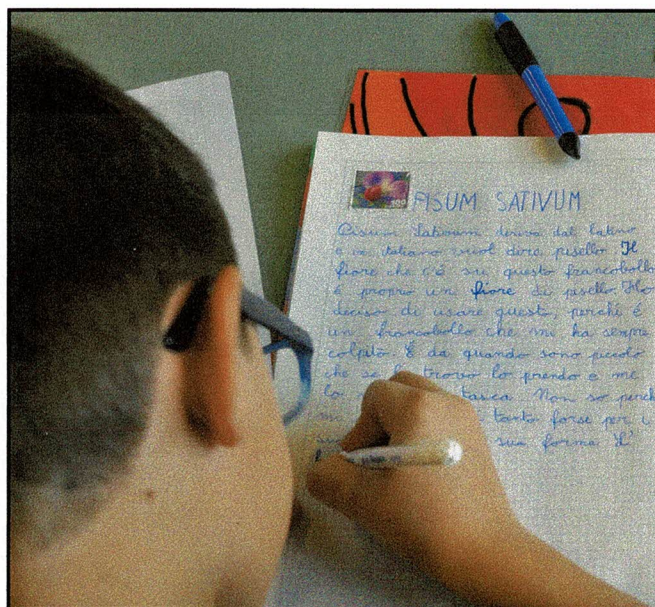 100
PISUM SATIVUM
Pisum Sativum deriva dal latino
e in italiano vuol dire pisello. Il
fiore che c'è su questo francobollo
è propro un fiore di pisello. Ho
deciso di usare questo, perchè è
un francobollo che mi ha sempre
colpito. È da quando sono piccolo
che se lo trovo lo prendo e me
lo tasca. Non so perch
tanto forse per i
sua forma. Il